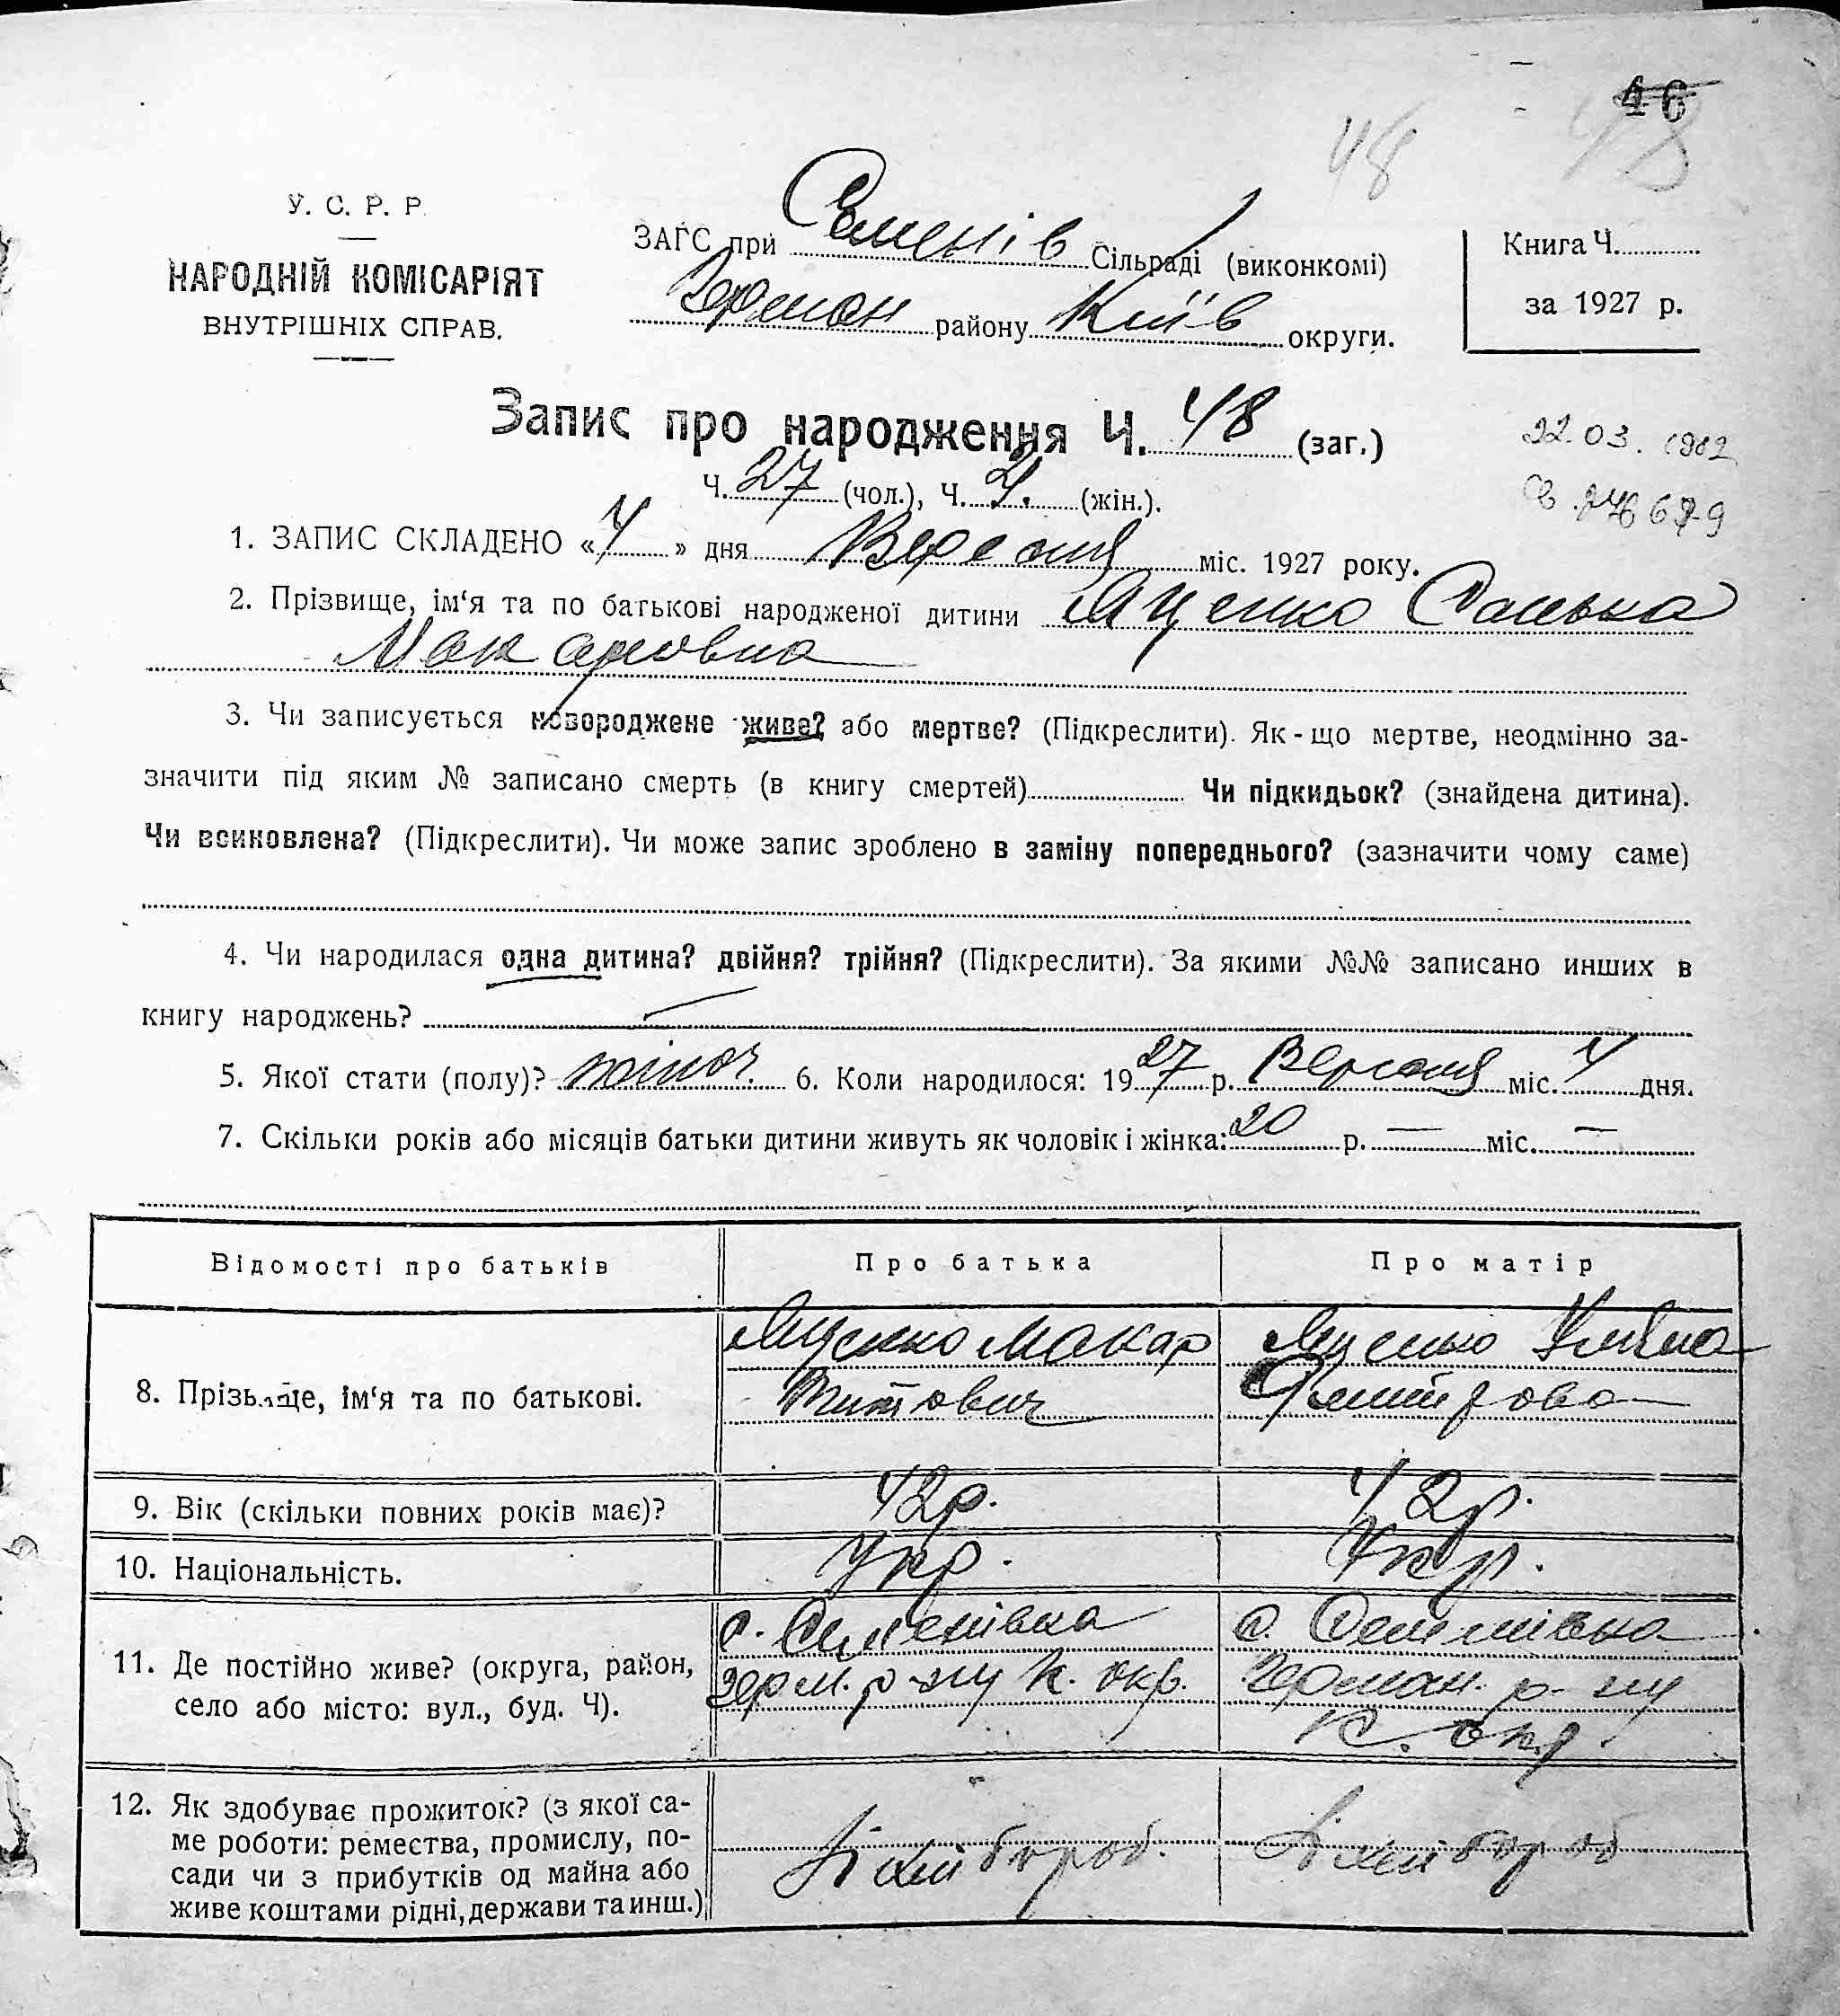 46
48 48
У. С. Р. Р.
НАРОДНІЙ КОМІСАРІЯТ
ВНУТРІШНІХ СПРАВ.
ЗАГС при Семенів Сільраді (виконкомі)
Герман району Київ округи.
Книга Ч.
за 1927 р.
Запис про народження Ч. 48 (заг.)
22.03.1982
Ч. 27 (чол.), Ч. (жін.).
1. ЗАПИС СКЛАДЕНО «4» дня Вересня міс. 1927 року.
2. Прізвище, ім‘я та по батькові народженої дитини Яценко Санька
Макаровна
3. Чи записується новороджене живе? або мертве? (Підкреслити). Як-що мертве, неодмінно за-
значити під яким № записано смерть (в книгу смертей) Чи підкидьок? (знайдена дитина).
Чи всиновлена? (Підкреслити). Чи може запис зроблено в заміну попереднього? (зазначити чому саме)
4. Чи народилася одна дитина? двійня? трійня? (Підкреслити). За якими №№ записано инших в
книгу народжень? —
5. Якої стати (полу)? жіноч. 6. Коли народилося: 1927 р. Вересня міс. 4 дня.
7. Скільки років або місяців батьки дитини живуть як чоловік і жінка: 20 р. — міс. —
Відомості про батьків Про батька Про матір
8. Прізьвіще, ім‘я та по батькові.
Яценко Макар
Титович
Яценко Уліта
Дмитрова
9. Вік (скільки повних років має)? 42р. 42р.
10. Національність. Укр. Укр.
11. Де постійно живе? (округа, район,
село або місто: вул., буд. Ч).
с. Семенівка
герм. р-ну К. окр.
с. Семенівка
Герман. р-ну
К. окр.
12. Як здобуває прожиток? (з якої са-
ме роботи: ремества, промислу, по-
сади чи з прибутків од майна або
живе коштами рідні, держави та инш.)
Хлібороб.
Хлібороб